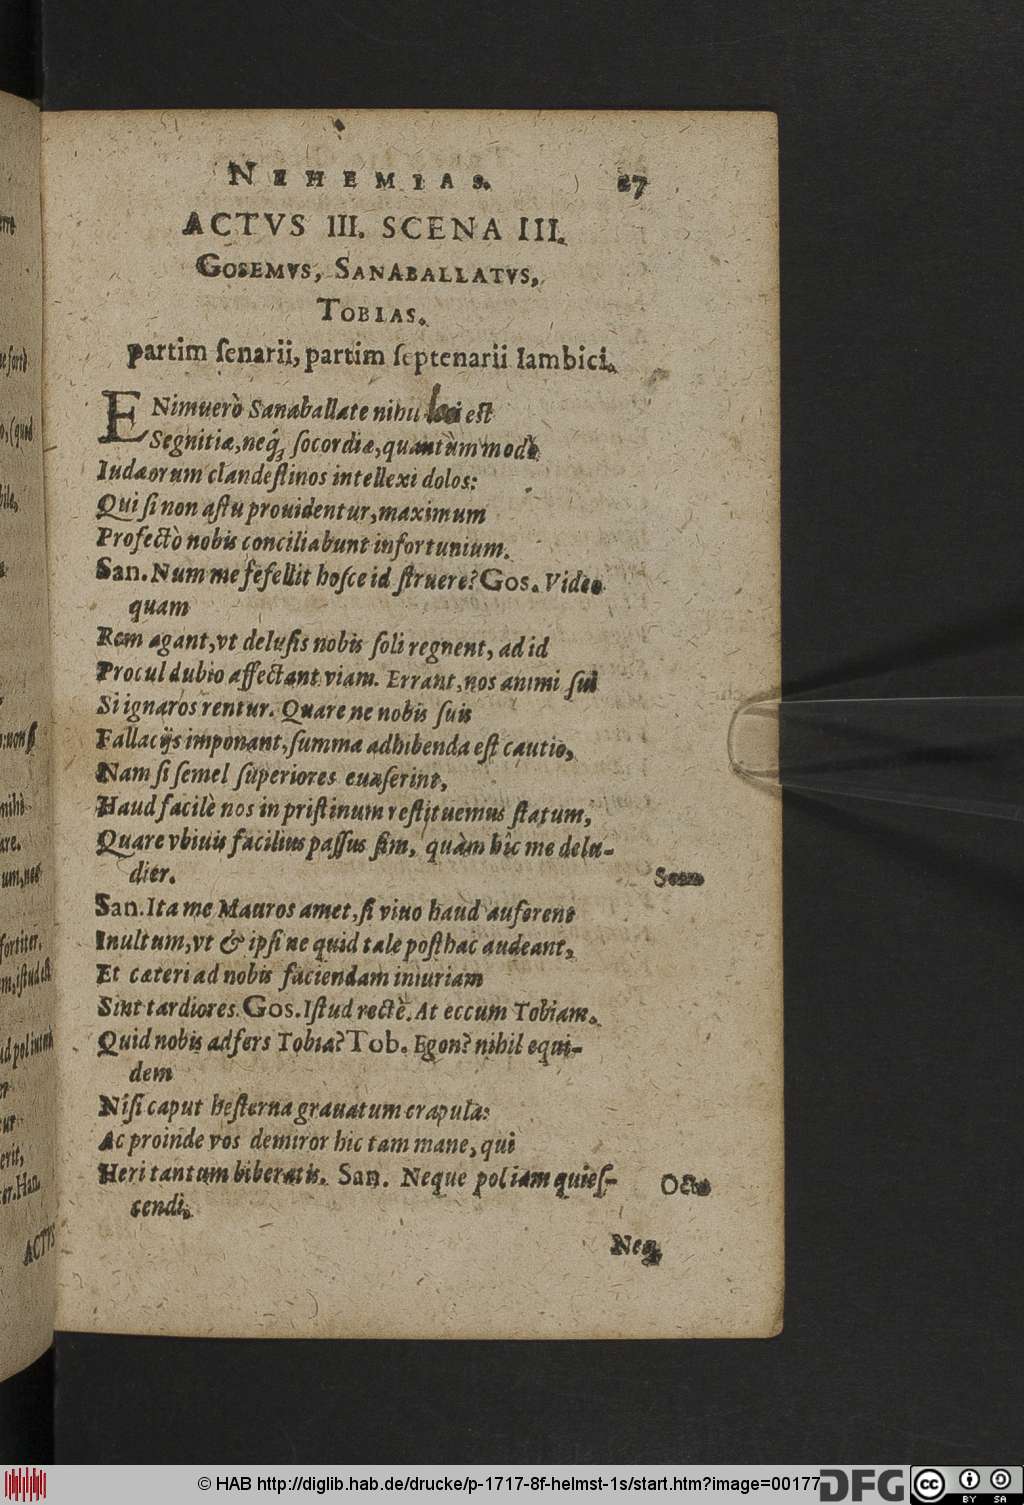 NEHEMIAS. 27
ACTVS III. SCENA III.
GOSEMVS, SANABALLATVS,
TOBIAS.
partim ſenarii, partim ſeptenarii Iambici.
ENimuerò Sanaballate nihil loci eſt
Segnitiæ, neq́; ſocordiæ, quantùm modò
Iudæorum clandeſtinos intellexi dolos:
Qui ſi non aſtu prouidentur, maximum
Profectò nobis conciliabunt infortunium.
San. Num me fefellit hoſce id ſtruere? Gos. Video
quam
Rem agant, vt deluſis nobis ſoli regnent, ad id
Procul dubio affectant viam. Errant, nos animi ſui
Si ignaros rentur. Quare ne nobis ſuis
Fallacijs imponant, ſumma adhibenda eſt cautio,
Nam ſi ſemel ſuperiores euaſerint,
Haud facilè nos in priſtinum reſtituemus ſtatum,
Quare vbiuis facilius paſſus ſim, quàm hic me delu-
dier.
Sena
San. Ita me Mauros amet, ſi viuo haud auferent
Inultum, vt & ipſi ne quid tale poſthac audeant,
Et cæteri ad nobis faciendam iniuriam
Sint tardiores. Gos. Iſtud rectè. At eccum Tobiam.
Quid nobis adfers Tobia? Tob. Egon? nihil equi-
dem
Niſi caput heſterna grauatum crapula:
Ac proinde vos demiror hic tam mane, qui
Heri tantum biberatis. San. Neque pol iam quieſ-
cendi. Octo
Neq;
ACTVS
© HAB http://diglib.hab.de/drucke/p-1717-8f-helmst-1s/start.htm?image=00177
DFG
cc BY SA